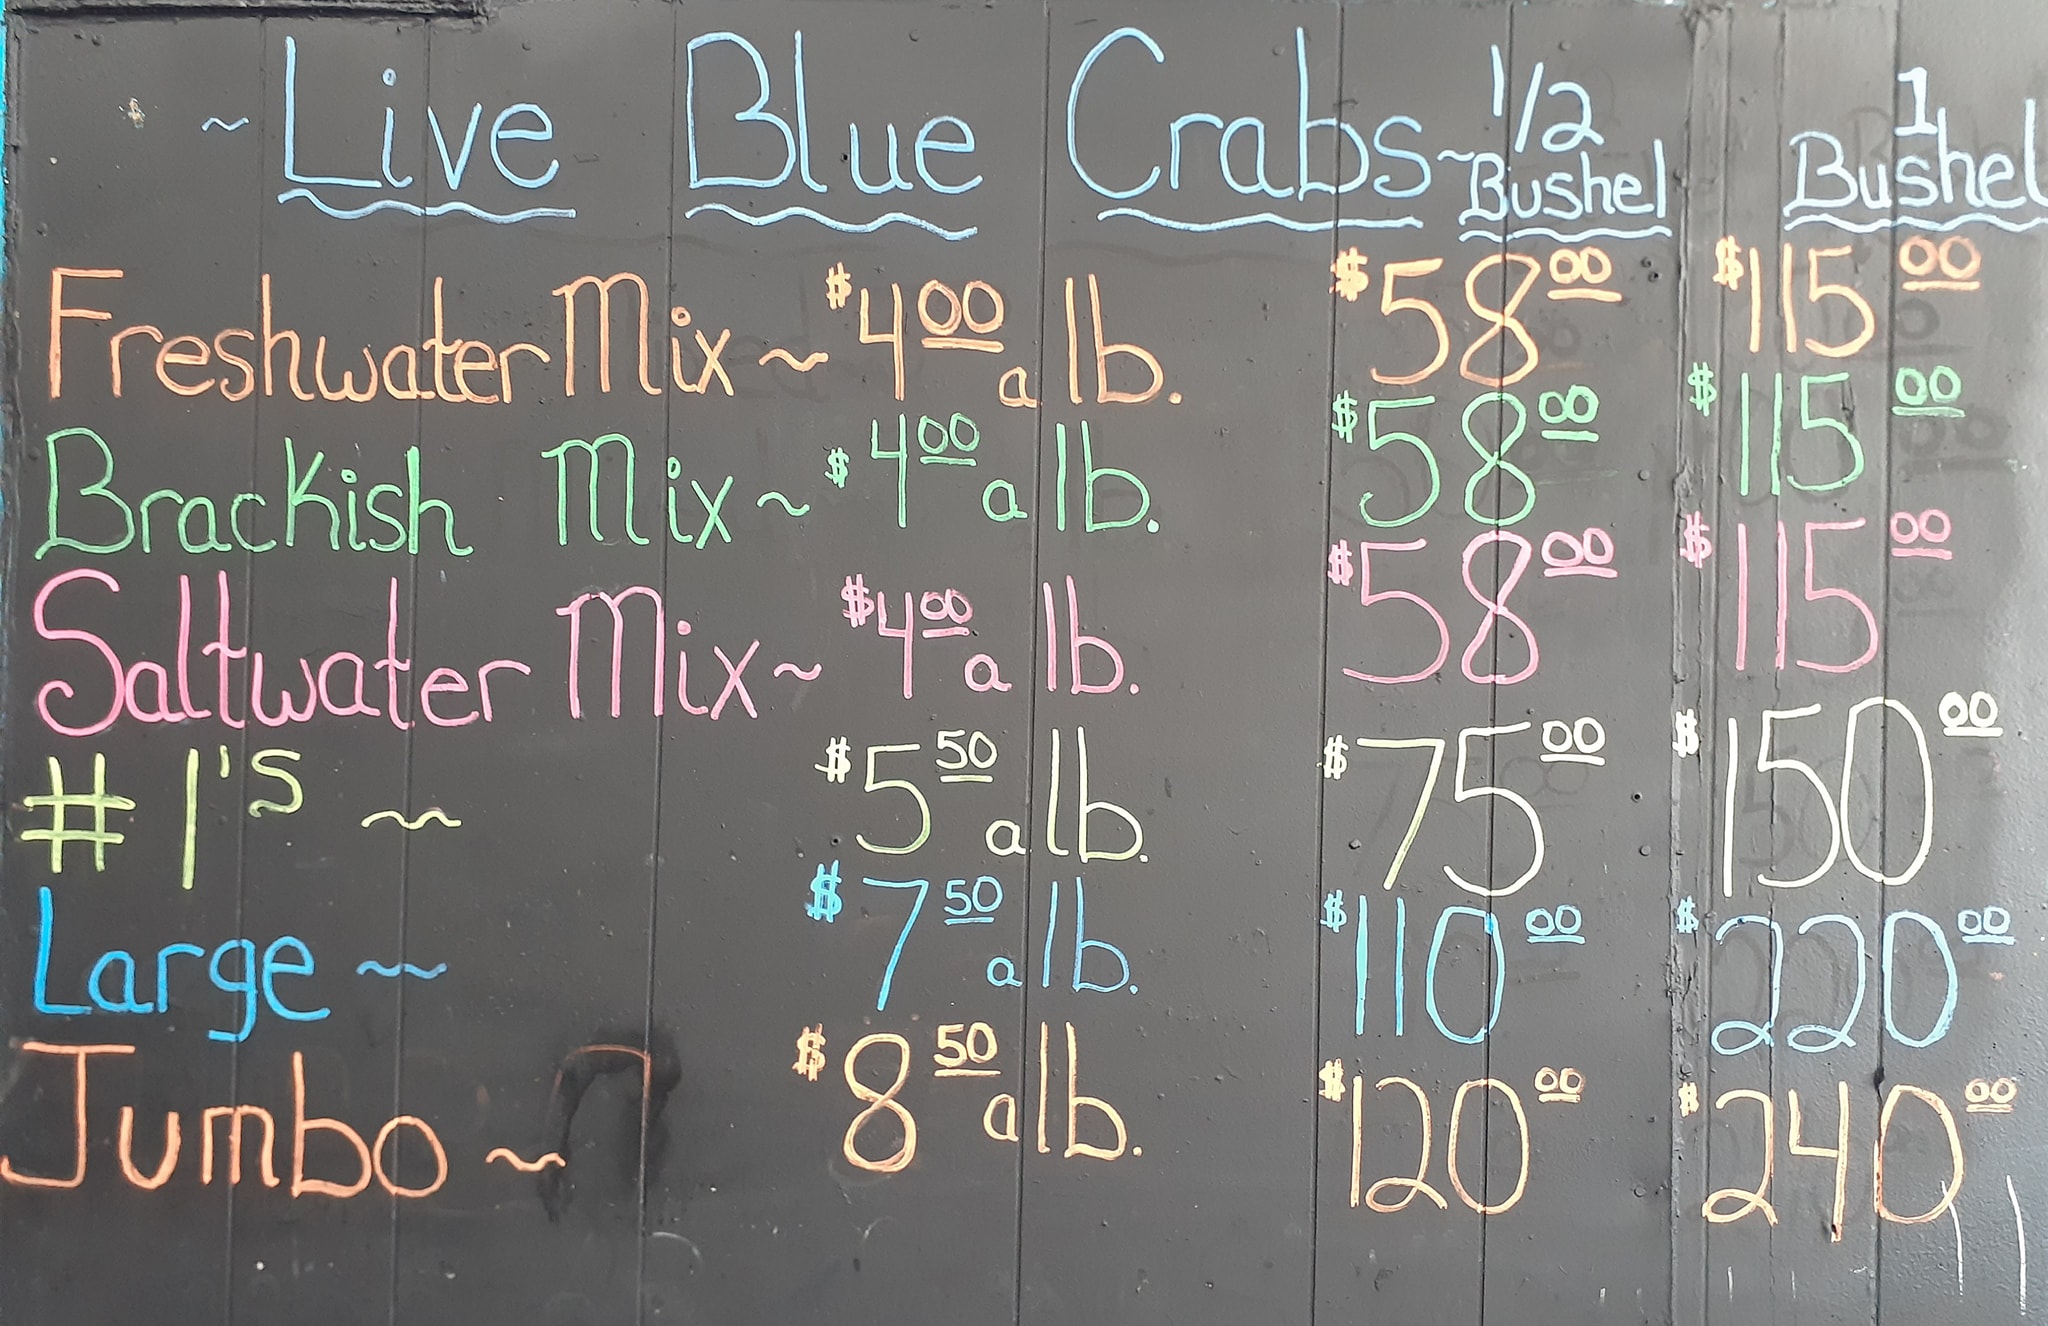 ~Live Blue Crabs~ 1/2 Bushel 1 Bushel
Freshwater Mix ~ $4.00 a lb. $58.00 $115.00
Brackish Mix ~ $4.00 a lb. $58.00 $115.00
Saltwater Mix ~ $4.00 a lb. $58.00 $115.00
# 1's ~ $5.50 a lb. $75.00 $150.00
Large ~~ $7.50 a lb. $110.00 $220.00
Jumbo ~ $8.50 a lb. $120.00 $240.00